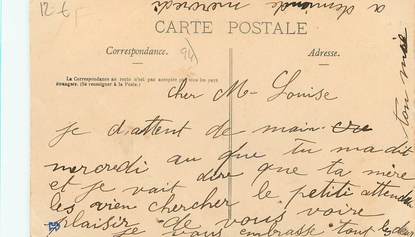 12 €
a demain mercredi
CARTE POSTALE
Correspondance.
Adresse.
94
La Correspondance au recto n'est pas acceptée par tous les pays
étrangers. (Se renseigner à la Poste.)
cher Me Louise
je d'attent de main
mercredi au que tu ma dit
et je vait dire que ta mère
les vien chercher le petite attendu
plaisir de vous voire
je vous embrasse tout les deux
ton